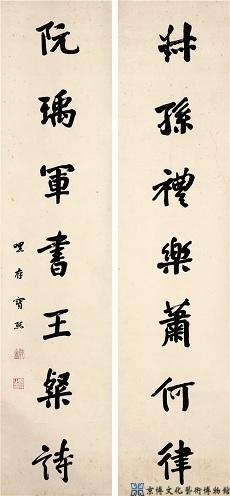 叔孫禮樂蕭何律
阮瑀軍書王粲詩
寶熙
京博文化藝術博物館